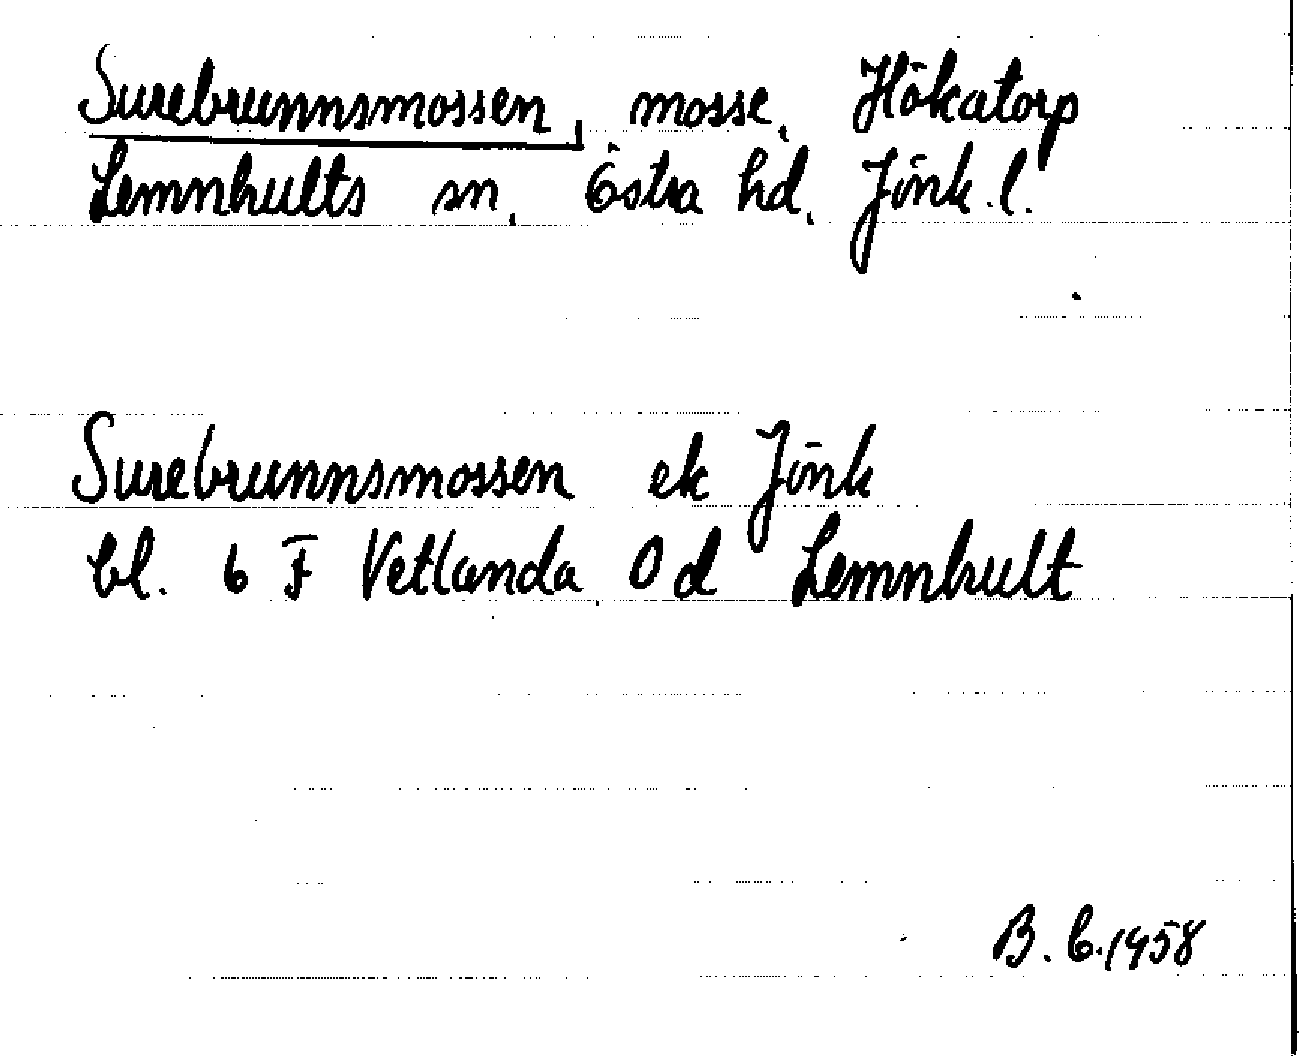 Surebrunnsmossen, mosse, Hökatorp
Lemnhults sn, Östra hd, Jönk.l.
Surebrunnsmossen ek Jönk
bl. 6 F Vetlanda 0 d Lemnhult
B. E. 1958